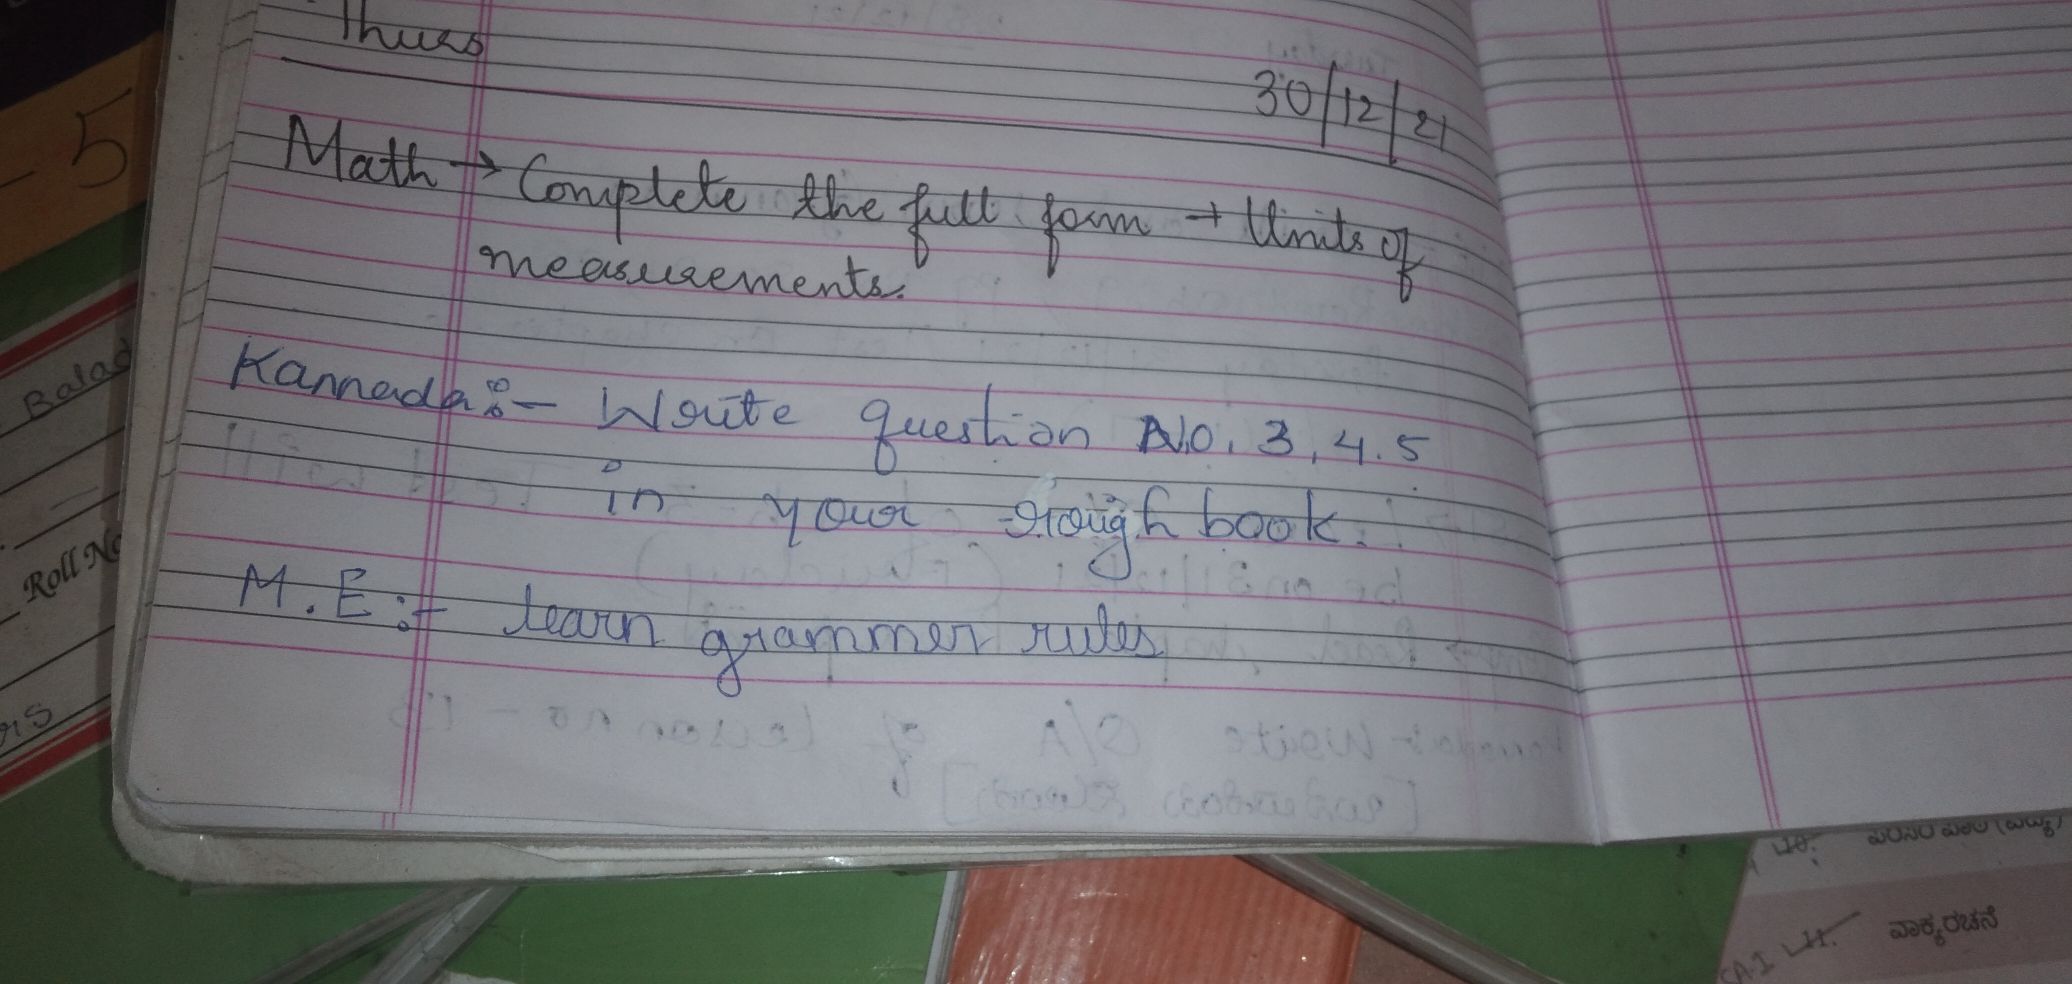 Thurs
30/12/21
Math → Complete the full form → Units of
measurements.
Kannada:- Write question No. 3, 4. 5
in your rough book.
M.E:- learn grammer rules
- 5
Balad
Roll No
rs
10.
11. ವಾಕ್ಯರಚನೆ